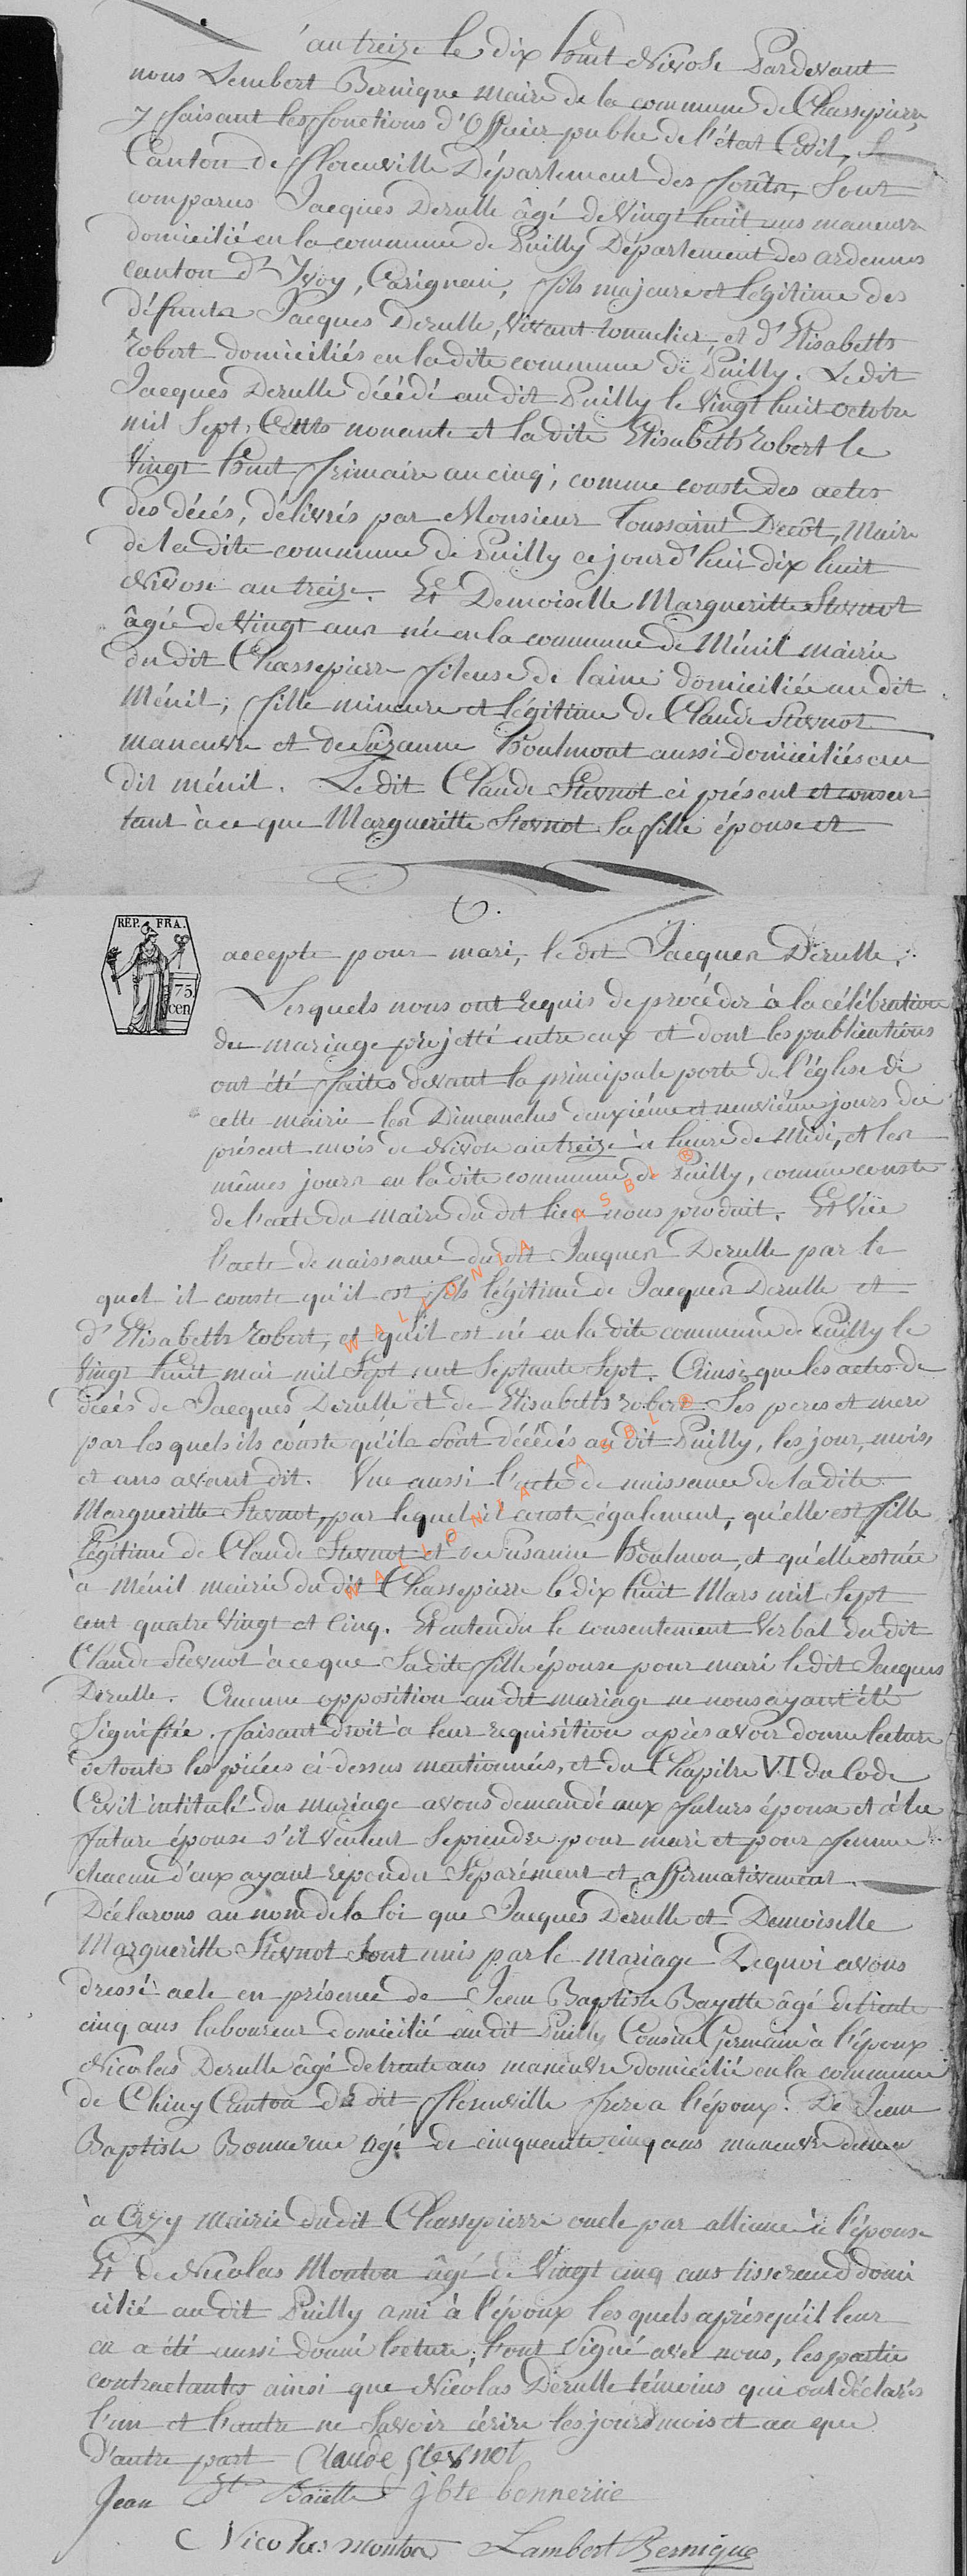 an treize le dix huit Nivose Pardevant
nous Lembert Bernique maire de la commune de Chassepierre
y faisant les fonctions d'Officier public de l'état Civil,
Canton de florenville Département des forêts, Sont
comparus Jacques Derulle âgé de Vingt huit ans maneuvre
domicilié en la commune de Puilly Département des ardennes
canton d'Yvoy, Carignan, fils majeure et légitime des
défunts Jacques Derulle, Vivant tonnelier, et d'Elisabeths
Robert domiciliés en la dite commune de Puilly. Le dit
Jacques Derulle décédé au dit Puilly le Vingt huit octobre
mil Sept Cents nonante et la dite Elisabeths Robert le
Vingt huit frimaire an cinq; comme conste des actes
des décés, délivrés par Monsieur Toussaint Decôt, Maire
de la dite commune de Puilly ce jourd'hui dix huit
Nivose an treize. Et Demoiselle Margueritte Stevnot
âgée de Vingt ans née en la commune de Ménil mairie
du dit Chassepierre fileuse de laine domiciliée au dit
Ménil; fille mineure et légitime de Claude Stevnot
maneuvre et de Suzanne Houlmont aussi domiciliés au
dit ménil. Le dit Claude Stevnot ci présent et consen
tant à ce que Margueritte Stevnot Sa fille épouse et
6.
REP. FRA.
75
cen
accepte pour mari, le dit Jacques Derulle.
Lesquels nous ont requis de procéder à la célébration
du mariage projetté entre eux et dont les publications
ont été faites devant la principale porte de l'église de
cette mairie les Dimanches deuxième et neuvième jours du
présent mois de Nivose an treize à heure de Midi, et les
mêmes jours en la dite commune de Puilly, comme conste
de l'acte du Maire du dit lieu nous produit. Et Vue
l'acte de naissance du dit Jacques Derulle par le
quel il conste qu'il est fils légitime de Jacques Derulle et
d'Elisabeths Robert, et qu'il est né en la dite commune de Puilly le
Vingt huit mai mil Sept cent Septante Sept. Ainsi que les actes de
décés de Jacques Derulle et de Elisabeths Robert Ses peres et mere
par les quels ils conste qu'ils Sont décédés au dit Puilly, les jour, mois,
et ans avant dit. Vue aussi l'acte de naissance de la dite
Margueritte Stevnot, par lequel il conste également, qu'elle est fille
légitime de Claude Stevnot et de Susanne Houlmon, et qu'elle est née
à Ménil mairie du dit Chassepierre le dix huit Mars mil Sept
cent quatre Vingt et Cinq. Et entendu le consentement Verbal du dit
Claude Stevnot à ce que Sa dite fille épouse pour mari le dit Jacques
Derulle. Aucune opposition au dit mariage ne nous ayant été
Signifiée. faisant droit à leur requisition après avoir donné lecture
de toute les pièces ci-dessus mentionnées, et du Chapitre VI du Code
Civil intitulé du mariage avons demandé aux futurs épouse et à la
future épouse s'il veulent Se prendre pour mari et pour femme
chacun d'eux ayant repondu Séparément et affirmativement.
Déclarons au nom de la loi que Jacques Derulle et Demoiselle
Margueritte Stevnot Sont unis par le mariage De quoi avons
dressé acte en présence de Jean Baptiste Bayette âgé de trente
cinq ans laboureur domicilié au dit Puilly Cousin Germain à l'époux
Nicolas Derulle âgé de trente ans maneuvre domicilié en la commune
de Chiny Canton du dit florenville frere a l'époux. De Jean
Baptiste Bonnerue âgé de cinquante cinq ans maneuvre
à Azy Mairie du dit Chassepierre oncle par alliance à l'épouse
Et de Nicolas Monton âgé de Vingt cinq ans tisserand domi
cilié au dit Puilly ami à l'époux les quels après qu'il leur
en a été aussi donné lecture; l'ont Signé avec nous, les partie
contractantes ainsi que Nicolas Derulle témoins qui ont déclarés
l'un et l'autre ne Savoir écrire les jours mois et an que
d'autre part Claude Stevnot
Jean Bte Baïette Jbte bonnerüe
Nicolas monton Lambert Bernique
WALLONIA ASBL ®
WALLONIA ASBL ®